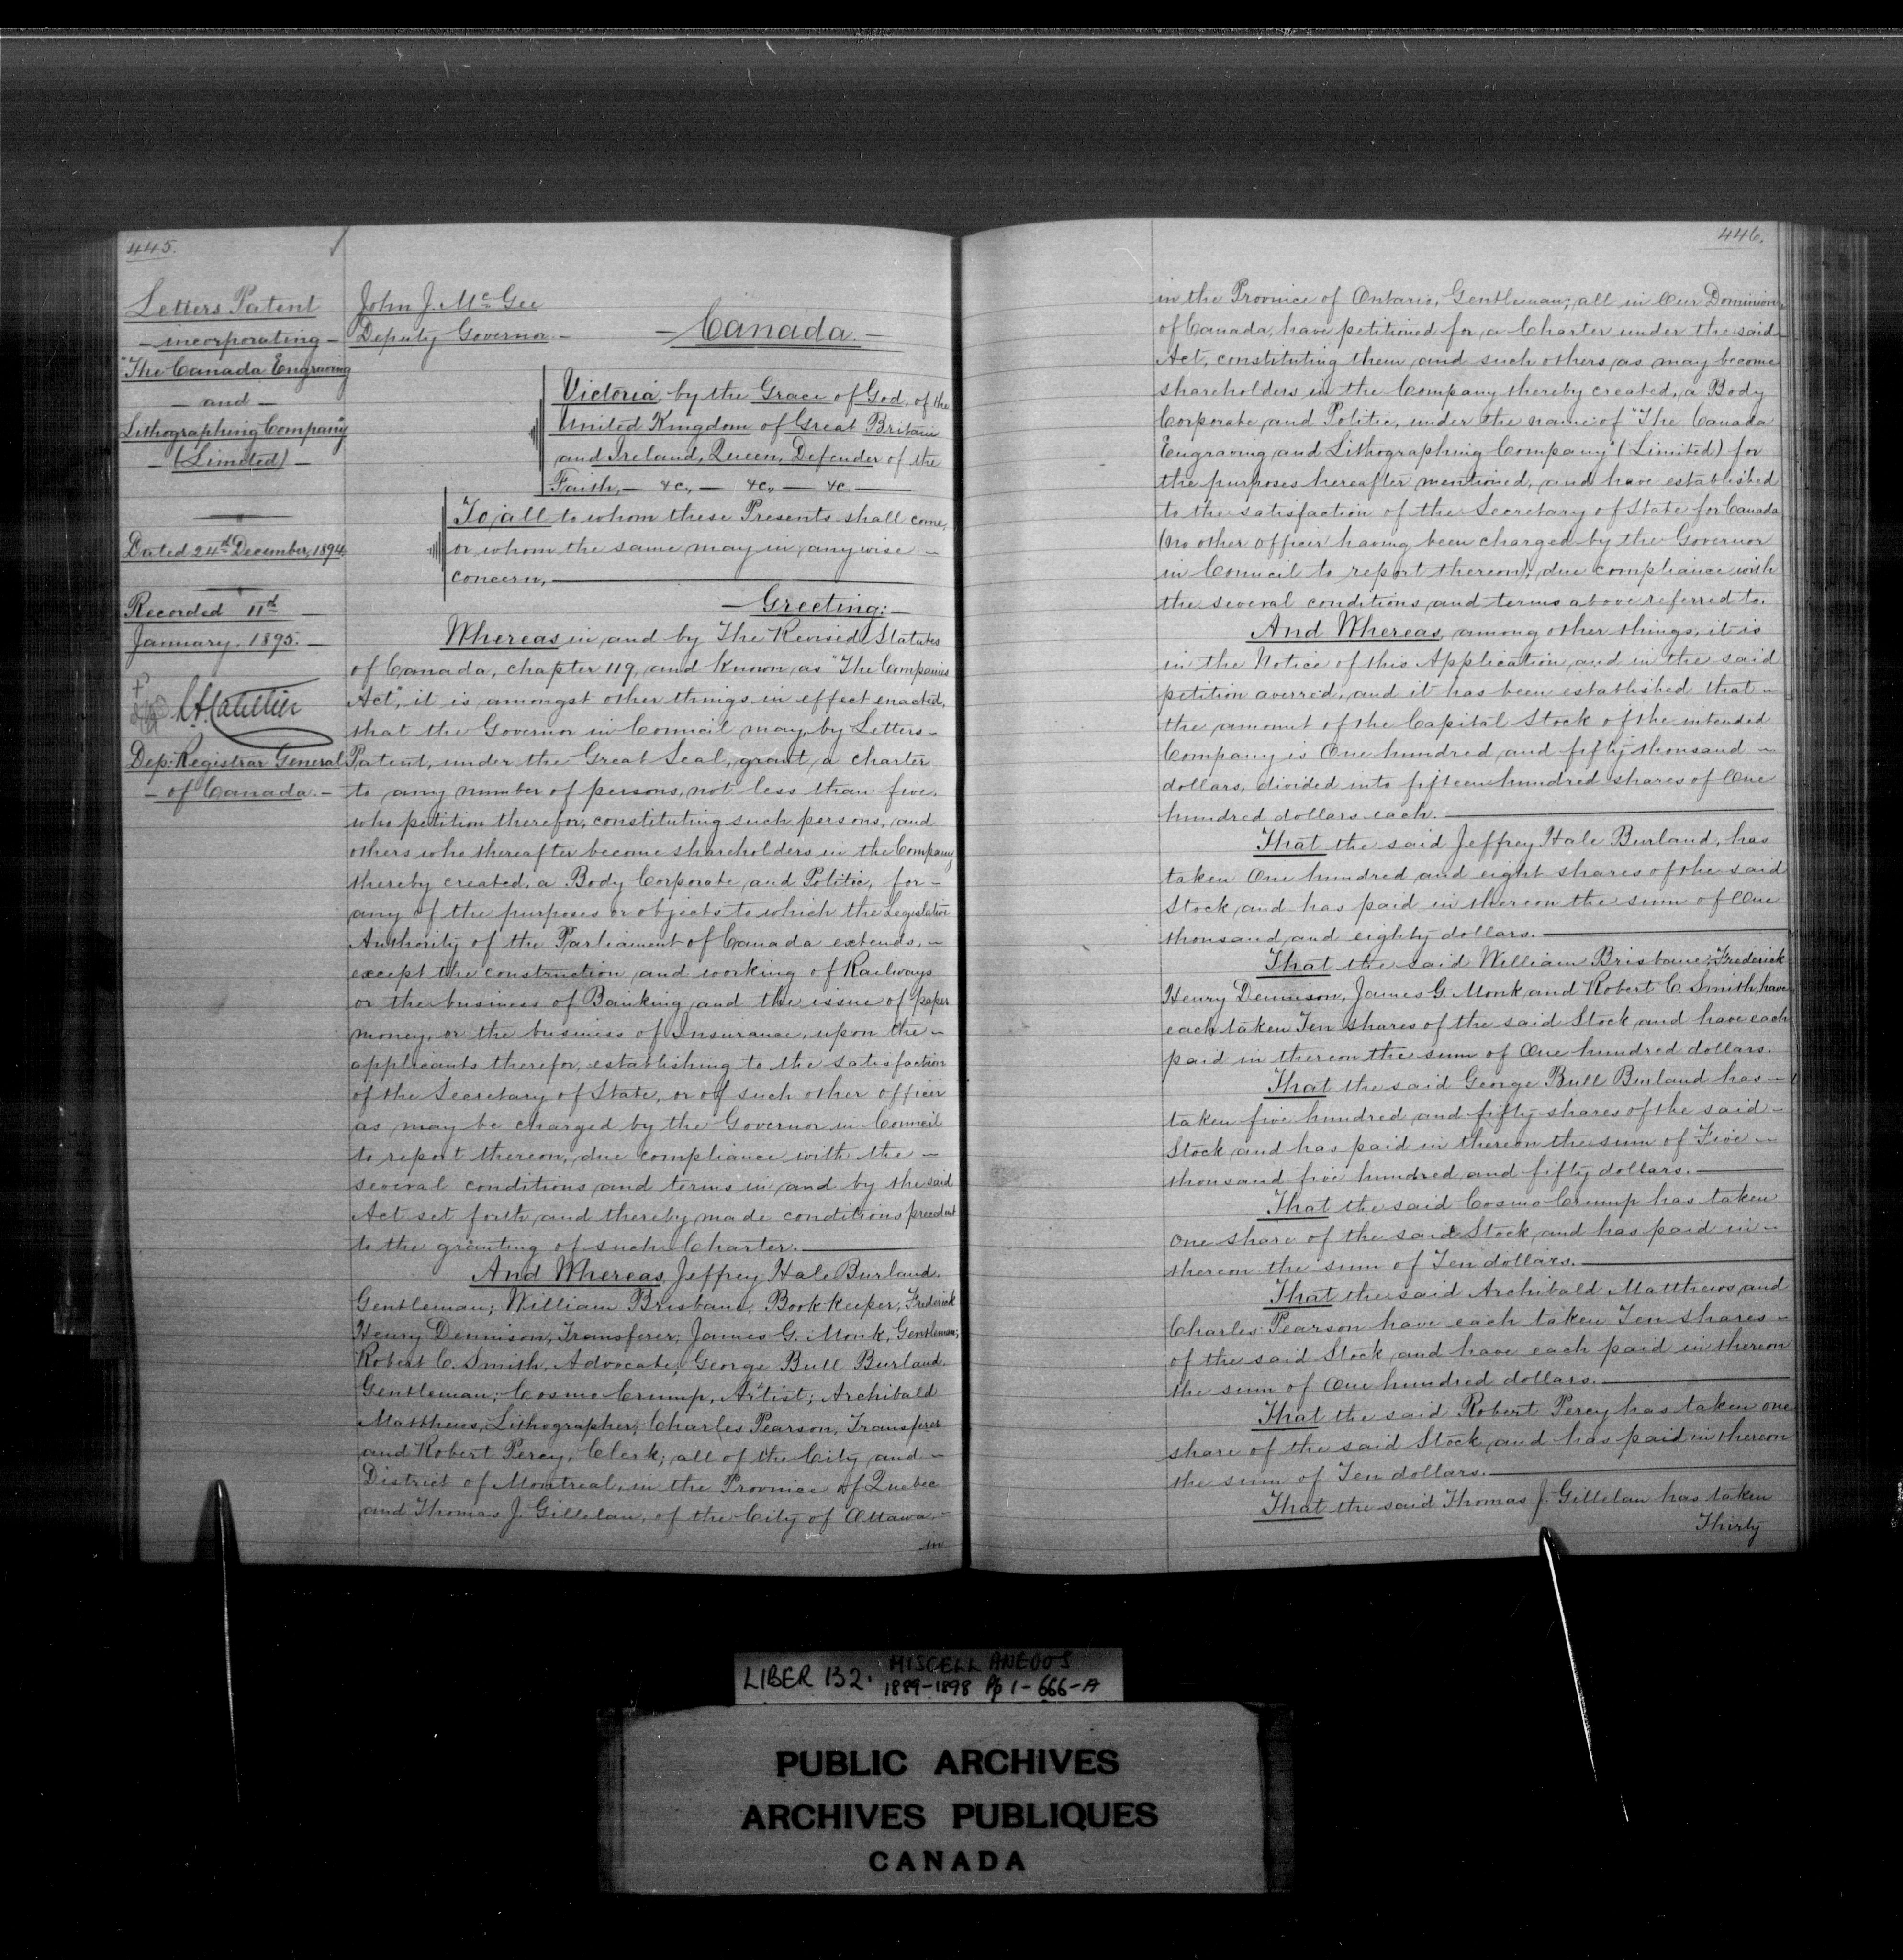 445.
Letters Patent
- incorporating -
"The Canada Engraving
- and -
Lithographing Company"
- (Limited) -
Dated 24th December, 1894.
Recorded 11th
January. 1895. -
Dep: Registrar General
- of Canada. -
John J. McGee
Deputy Governor. -
- Canada. -
Victoria, by the Grace of God, of the
United Kingdom of Great Britain
and Ireland, Queen, Defender of the
Faith, - &c., - &c., - &c. -
To all to whom these Presents shall come,
or whom the same may in anywise -
concern, -
- Greeting: -
Whereas in and by The Revised Statutes
of Canada, chapter 119, and known as "The Companies
Act", it is amongst other things in effect enacted,
that the Governor in Council may, by Letters -
Patent, under the Great Seal, grant a charter
to any number of persons, not less than five,
who petition therefor, constituting such persons, and
others who thereafter become shareholders in the Company
thereby created, a Body Corporate and Politic, for -
any of the purposes or objects to which the Legislative
Authority of the Parliament of Canada extends, -
except the construction and working of Railways
or the business of Banking and the issue of paper
money, or the business of Insurance, upon the -
applicants therefor, establishing to the satisfaction
of the Secretary of State, or of such other officer
as may be charged by the Governor in Council
to report thereon, due compliance with the -
several conditions and terms in and by the said
Act set forth and thereby made conditions precedent
to the granting of such Charter. -
And Whereas, Jeffrey Hale Burland,
Gentleman; William Brisbane, Bookkeeper; Frederick
Henry Dennison, Transferer; James G. Monk, Gentleman;
Robert C. Smith, Advocate; George Bull Burland,
Gentleman; Cosmo Crump, Artist; Archibald
Matthews, Lithographer; Charles Pearson, Transferer
and Robert Percy, Clerk; all of the City and -
District of Montreal, in the Province of Quebec
and Thomas J. Gillelan, of the City of Ottawa, -
in
446.
in the Province of Ontario, Gentleman; all in Our Dominion
of Canada, have petitioned for a Charter under the said
Act, constituting them and such others as may become
shareholders in the Company thereby created, a Body
Corporate and Politic, under the name of "The Canada
Engraving and Lithographing Company" (Limited) for
the purposes hereafter mentioned, and have established
to the satisfaction of the Secretary of State for Canada
(no other officer having been charged by the Governor
in Council to report thereon), due compliance with
the several conditions and terms above referred to.
And Whereas, among other things, it is
in the Notice of this Application and in the said
petition averred, and it has been established that -
the amount of the Capital Stock of the intended
Company is One hundred and fifty thousand -
dollars, divided into fifteen hundred shares of One
hundred dollars each. -
That the said Jeffrey Hale Burland, has
taken One hundred and eight shares of the said
Stock and has paid in thereon the sum of One
thousand and eighty dollars. -
That the said William Brisbane, Frederick
Henry Dennison, James G. Monk and Robert C. Smith, have
each taken Ten shares of the said Stock and have each
paid in thereon the sum of One hundred dollars.
That the said George Bull Burland has -
taken five hundred and fifty shares of the said -
Stock and has paid in thereon the sum of Five -
thousand five hundred and fifty dollars. -
That the said Cosmo Crump has taken
one share of the said Stock and has paid in -
thereon the sum of Ten dollars. -
That the said Archibald Matthews and
Charles Pearson have each taken Ten shares -
of the said Stock and have each paid in thereon
the sum of One hundred dollars. -
That the said Robert Percy has taken one
share of the said Stock and has paid in thereon
the sum of Ten dollars. -
That the said Thomas J. Gillelan has taken
Thirty
LIBER 132. MISCELLANEOUS
1889-1898 Pp 1-666-A
PUBLIC ARCHIVES
ARCHIVES PUBLIQUES
CANADA